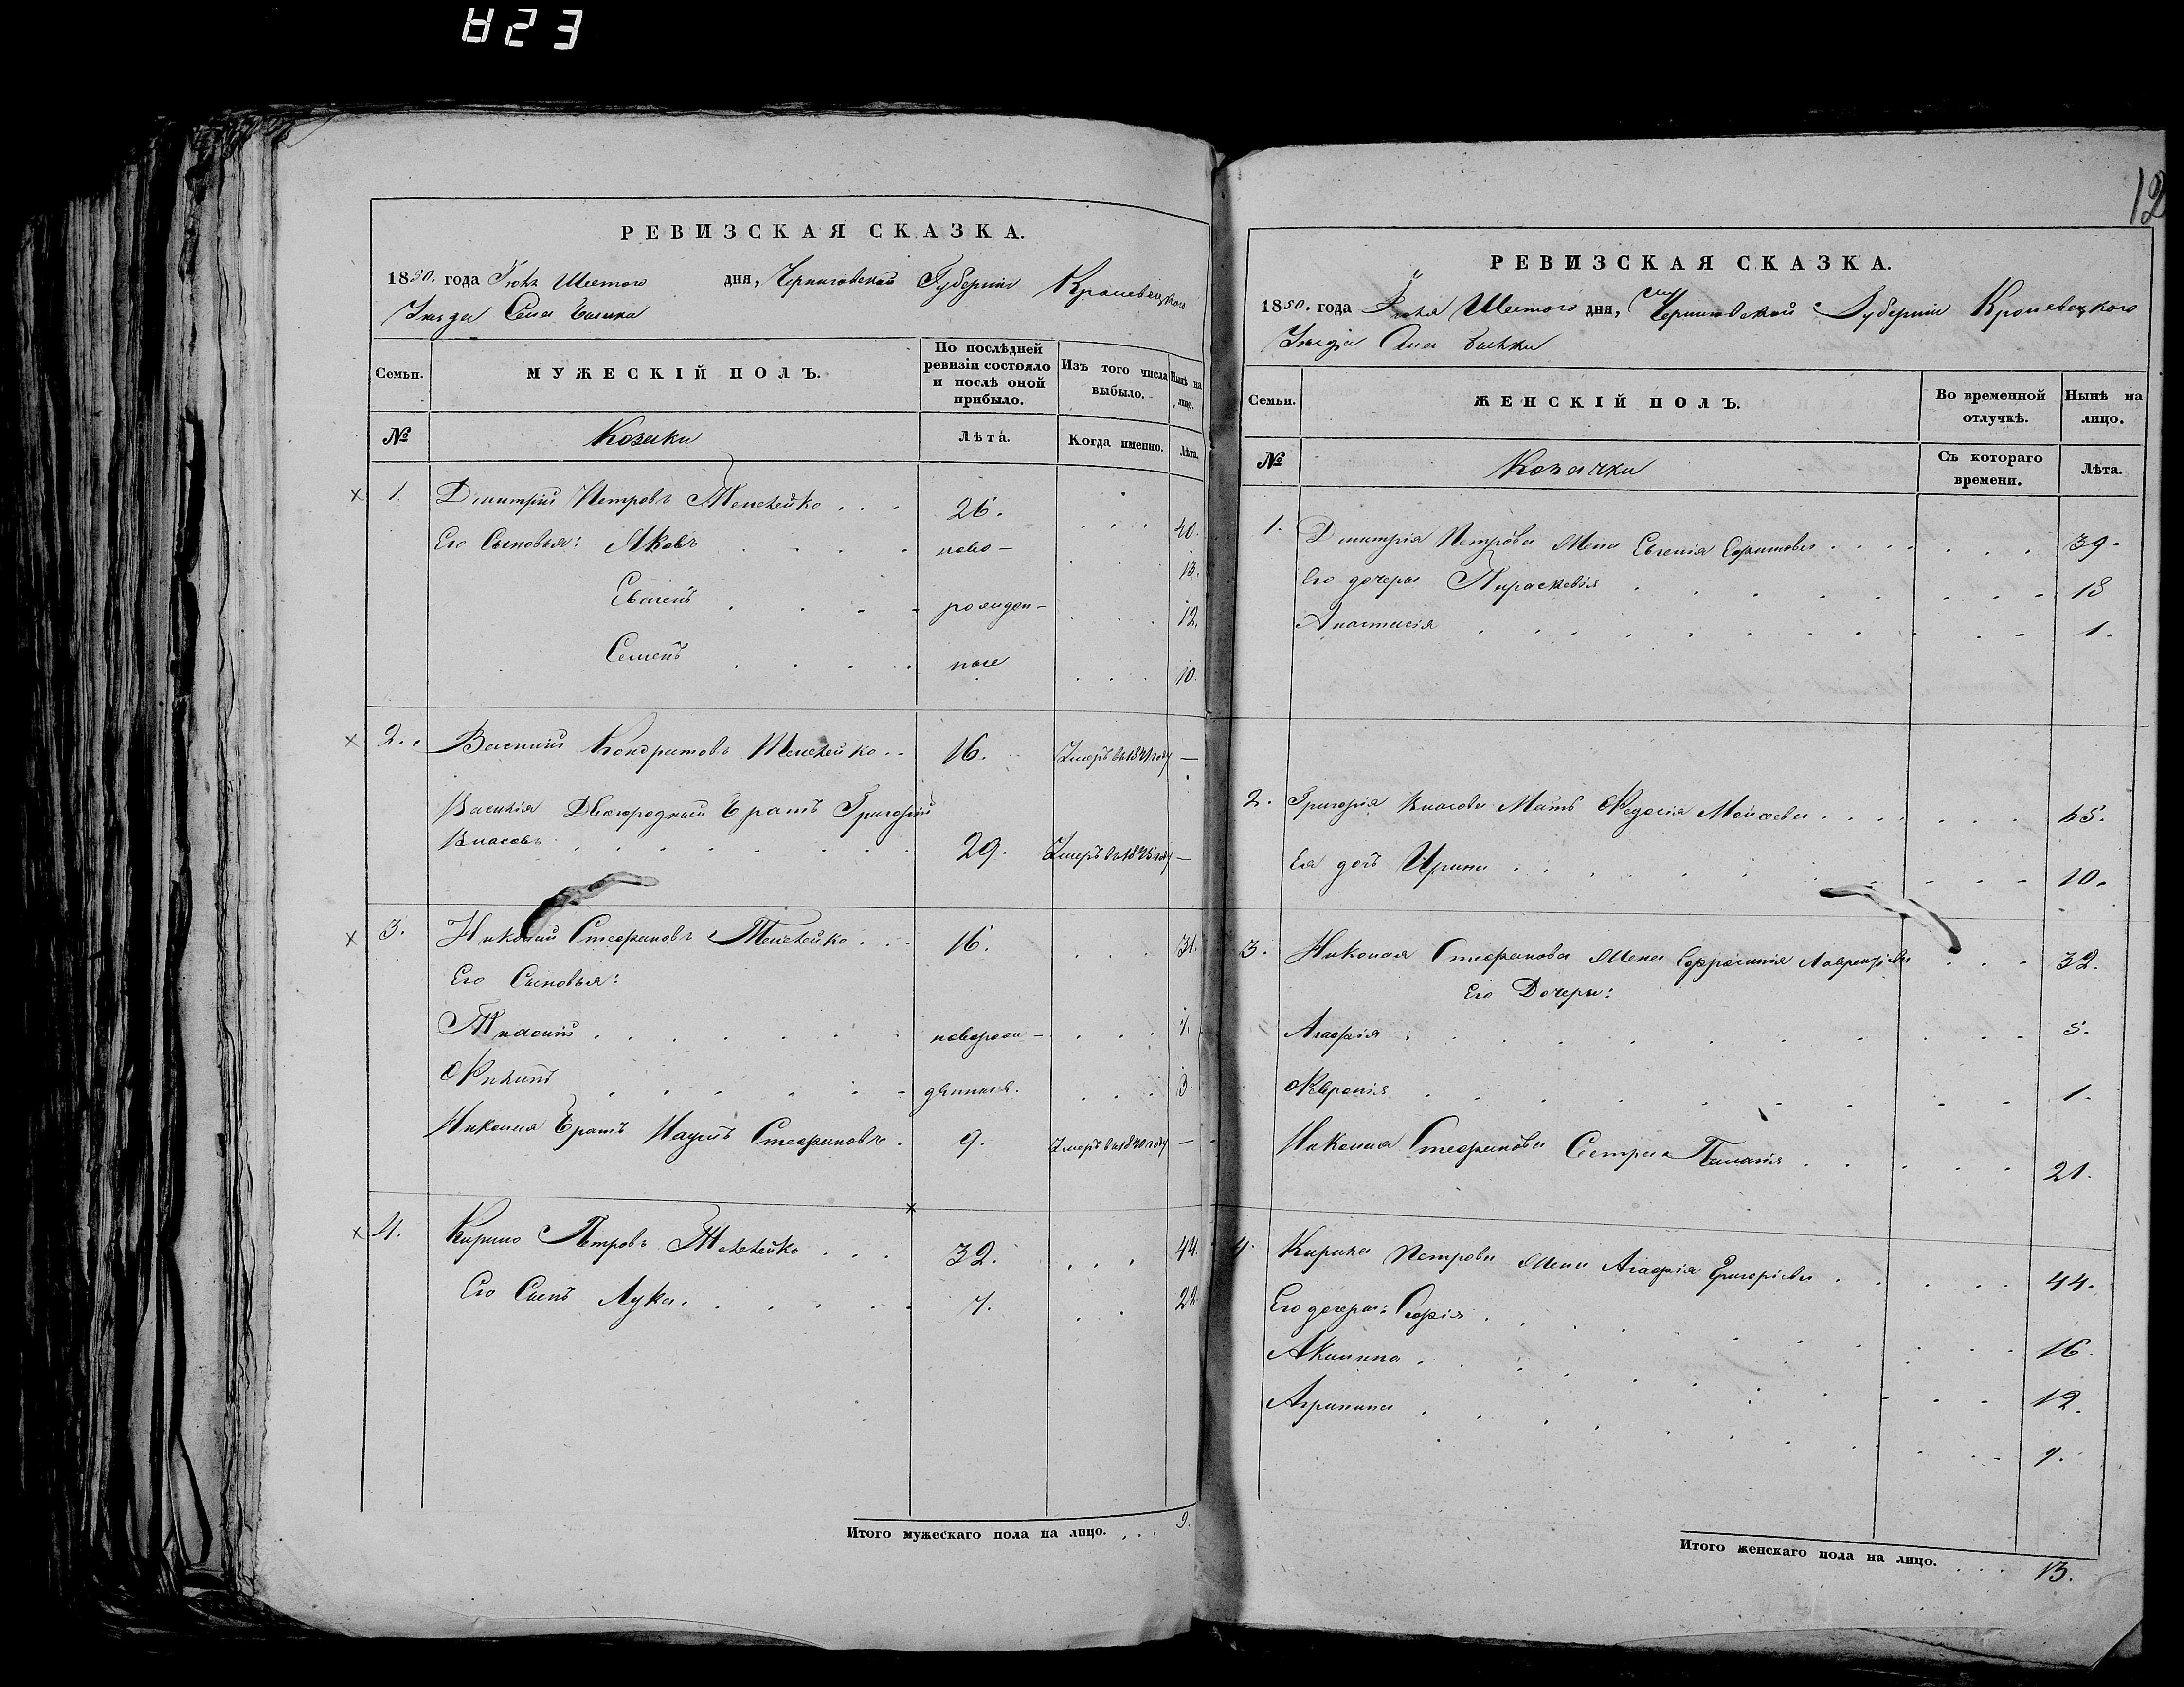 823
12
РЕВИЗСКАЯ СКАЗКА.
1850. года Шестого дня, Черниговской Губернии Кролевецкого
Уезда Села
Семьи.
МУЖЕСКІЙ ПОЛЪ.
По послѣдней ревизіи состояло и послѣ оной прибыло.
Изъ того числа выбыло.
Нынѣ на лицо.
№
Козаки
Лѣта.
Когда именно.
Лѣта.
1. Дмитрій Петровъ 26. 40.
Его Сыновья: Яковъ ново- 13.
рожден- 12.
Семенъ ные 10.
2. Василий Кондратовъ 16. Умеръ въ 1841 году —
Василія Двоюродный братъ Григорій
Власовъ 29. Умеръ въ году —
3. Николай Стефановъ 16. 31.
Его Сыновья:
7.
Филипъ 3.
Николая братъ Наумъ Стефановъ 9. Умеръ въ 1840 году —
4. Кирило Петровъ 32. 44.
Его Сынъ Лука 7. 22.
Итого мужескаго пола на лицо. 9.
РЕВИЗСКАЯ СКАЗКА.
1850. года Шестого дня, Черниговской Губернии Кролевецкого
Уезда Села
Семьи.
ЖЕНСКІЙ ПОЛЪ.
Во временной отлучкѣ.
Нынѣ на лицо.
№
Козачки
Съ котораго времени.
Лѣта.
1. Дмитрія Петрова Жена Евгенія 39.
Его дочери Параскевія 18
Анастасія 1.
2. Григорія Власова Мать Федосія Мойсеева
Ея дочь Ирина 10.
3. Николая Стефанова Жена Ефросинія 32.
Его Дочери:
Агафія 5.
Феврония 1.
Николая Стефанова Сестра Пелагія 21.
4. Кирила Петрова Жена Агафія Григоріева 44.
Его дочери: Софія 16.
Акилина 12.
Агрипина
Итого женскаго пола на лицо. 13.